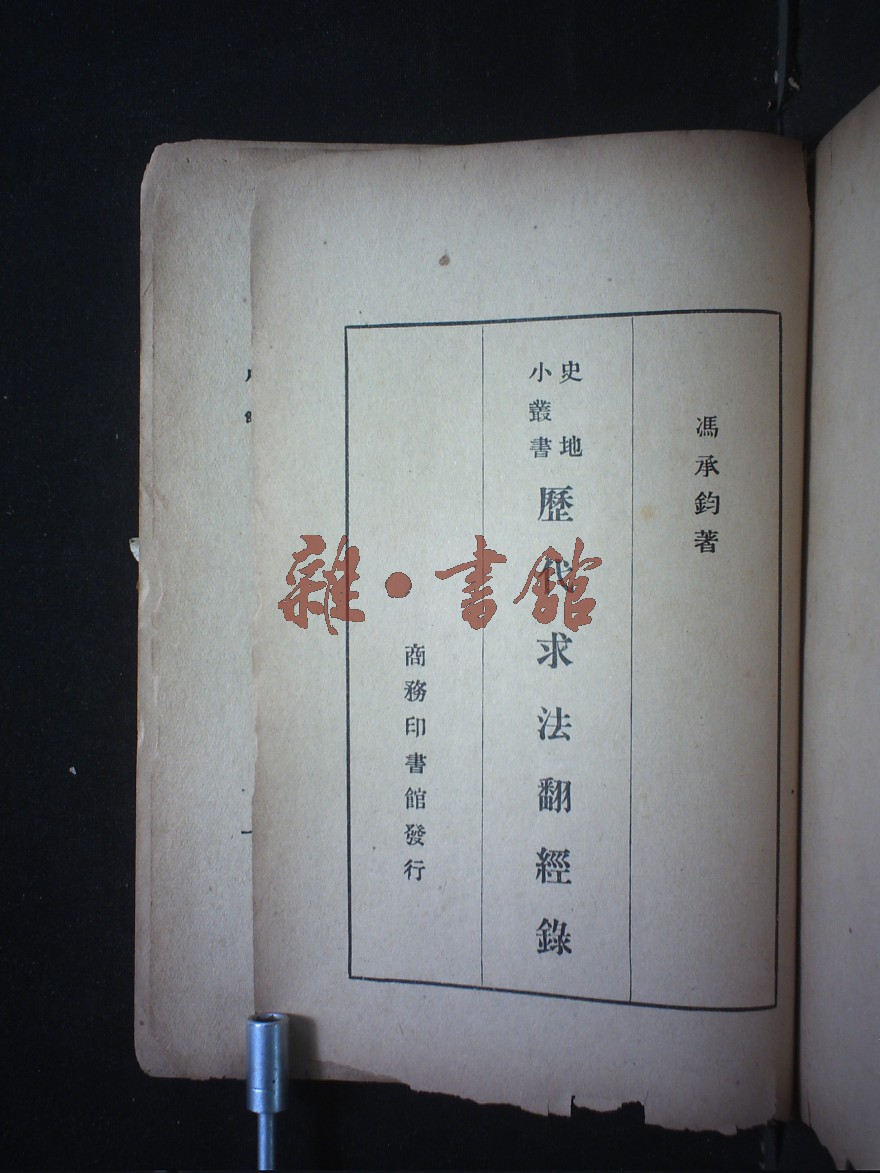 馮承鈞著
史地
小叢書
歷代求法翻經錄
商務印書館發行
雜·書館